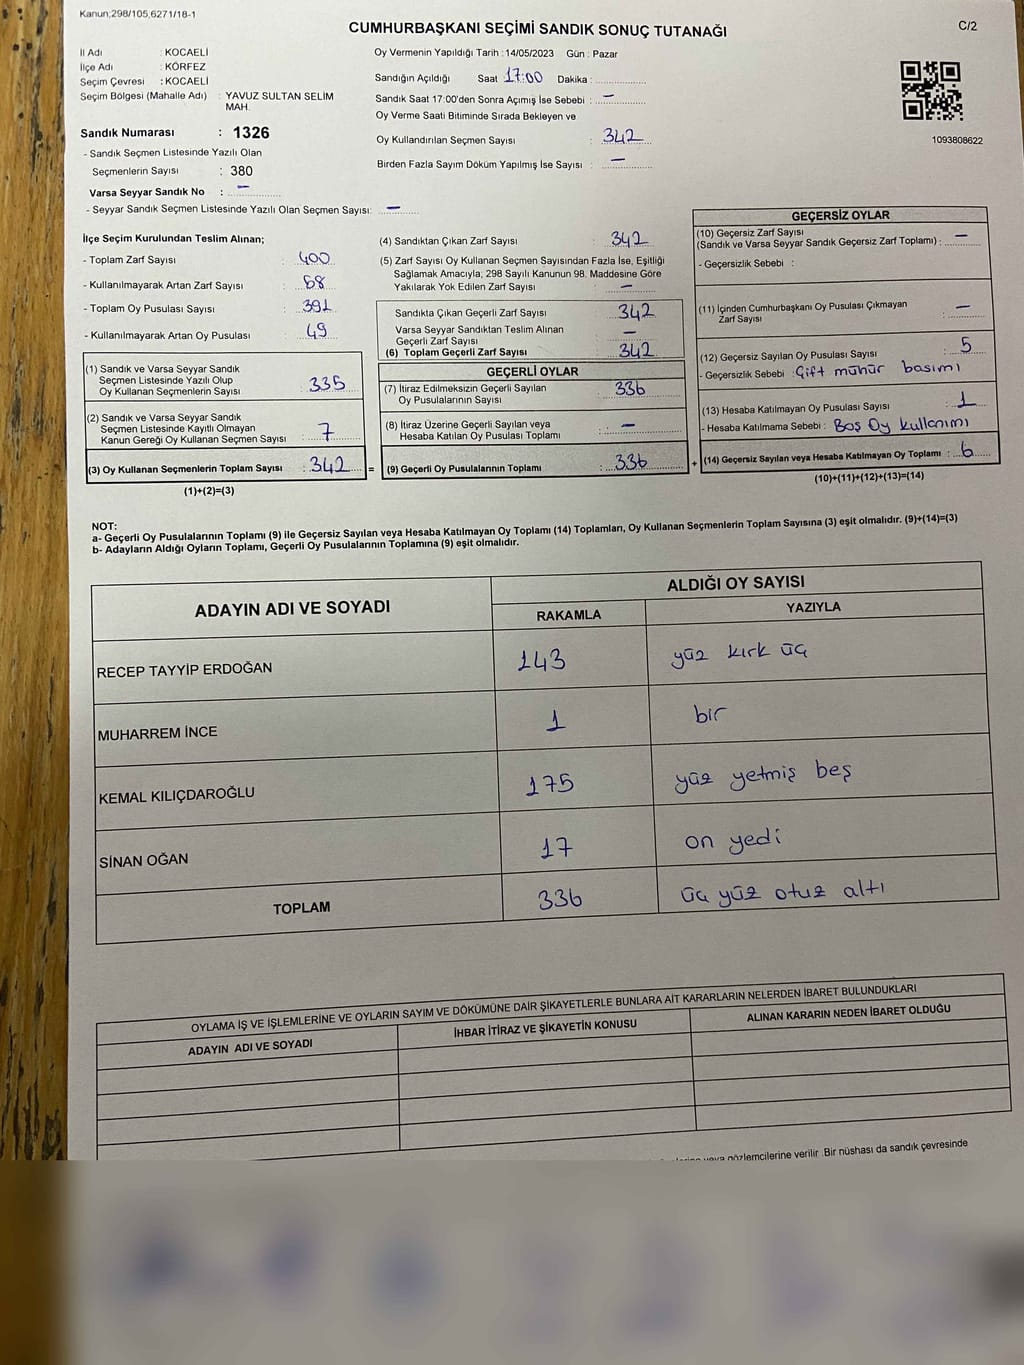 Kanun;298/105,6271/18-1
CUMHURBAŞKANI SEÇİMİ SANDIK SONUÇ TUTANAĞI
C/2
İl Adı : KOCAELİ
İlçe Adı : KÖRFEZ
Seçim Çevresi : KOCAELİ
Seçim Bölgesi (Mahalle Adı) : YAVUZ SULTAN SELİM
MAH.
Sandık Numarası : 1326
- Sandık Seçmen Listesinde Yazılı Olan
Seçmenlerin Sayısı : 380
Varsa Seyyar Sandık No : –
- Seyyar Sandık Seçmen Listesinde Yazılı Olan Seçmen Sayısı: –
Oy Vermenin Yapıldığı Tarih : 14/05/2023 Gün : Pazar
Sandığın Açıldığı Saat 17:00 Dakika :
Sandık Saat 17:00'den Sonra Açımış İse Sebebi : –
Oy Verme Saati Bitiminde Sırada Bekleyen ve
Oy Kullandırılan Seçmen Sayısı : 342
Birden Fazla Sayım Döküm Yapılmış İse Sayısı : –
1093808622
İlçe Seçim Kurulundan Teslim Alınan;
- Toplam Zarf Sayısı : 400
- Kullanılmayarak Artan Zarf Sayısı : 58
- Toplam Oy Pusulası Sayısı : 391
- Kullanılmayarak Artan Oy Pusulası : 49
(1) Sandık ve Varsa Seyyar Sandık
Seçmen Listesinde Yazılı Olup
Oy Kullanan Seçmenlerin Sayısı : 335
(2) Sandık ve Varsa Seyyar Sandık
Seçmen Listesinde Kayıtlı Olmayan
Kanun Gereği Oy Kullanan Seçmen Sayısı : 7
(3) Oy Kullanan Seçmenlerin Toplam Sayısı : 342 =
(1)+(2)=(3)
(4) Sandıktan Çıkan Zarf Sayısı : 342
(5) Zarf Sayısı Oy Kullanan Seçmen Sayısından Fazla İse, Eşitliği
Sağlamak Amacıyla; 298 Sayılı Kanunun 98. Maddesine Göre
Yakılarak Yok Edilen Zarf Sayısı : –
Sandıkla Çıkan Geçerli Zarf Sayısı : 342
Varsa Seyyar Sandıktan Teslim Alınan
Geçerli Zarf Sayısı : –
(6) Toplam Geçerli Zarf Sayısı : 342
GEÇERLİ OYLAR
(7) İtiraz Edilmeksizin Geçerli Sayılan
Oy Pusulalarının Sayısı : 336
(8) İtiraz Üzerine Geçerli Sayılan veya
Hesaba Katılan Oy Pusulası Toplamı : –
(9) Geçerli Oy Pusulalarının Toplamı : 336 +
GEÇERSİZ OYLAR
(10) Geçersiz Zarf Sayısı
(Sandık ve Varsa Seyyar Sandık Geçersiz Zarf Toplamı) : –
- Geçersizlik Sebebi :
(11) İçinden Cumhurbaşkanı Oy Pusulası Çıkmayan
Zarf Sayısı : –
(12) Geçersiz Sayılan Oy Pusulası Sayısı : 5
- Geçersizlik Sebebi : Çift mühür basımı
(13) Hesaba Katılmayan Oy Pusulası Sayısı : 1
- Hesaba Katılmama Sebebi : Boş Oy kullanımı
(14) Geçersiz Sayılan veya Hesaba Katılmayan Oy Toplamı : 6
(10)+(11)+(12)+(13)=(14)
NOT:
a- Geçerli Oy Pusulalarının Toplamı (9) ile Geçersiz Sayılan veya Hesaba Katılmayan Oy Toplamı (14) Toplamları, Oy Kullanan Seçmenlerin Toplam Sayısına (3) eşit olmalıdır. (9)+(14)=(3)
b- Adayların Aldığı Oyların Toplamı, Geçerli Oy Pusulalarının Toplamına (9) eşit olmalıdır.
ADAYIN ADI VE SOYADI
ALDIĞI OY SAYISI
RAKAMLA YAZIYLA
RECEP TAYYİP ERDOĞAN 143 yüz kırk üç
MUHARREM İNCE 1 bir
KEMAL KILIÇDAROĞLU 175 yüz yetmiş beş
SİNAN OĞAN 17 on yedi
TOPLAM 336 üç yüz otuz altı
OYLAMA İŞ VE İŞLEMLERİNE VE OYLARIN SAYIM VE DÖKÜMÜNE DAİR ŞİKAYETLERLE BUNLARA AİT KARARLARIN NELERDEN İBARET BULUNDUKLARI
ADAYIN ADI VE SOYADI İHBAR İTİRAZ VE ŞİKAYETİN KONUSU ALINAN KARARIN NEDEN İBARET OLDUĞU
gözlemcilerine verilir .Bir nüshası da sandık çevresinde